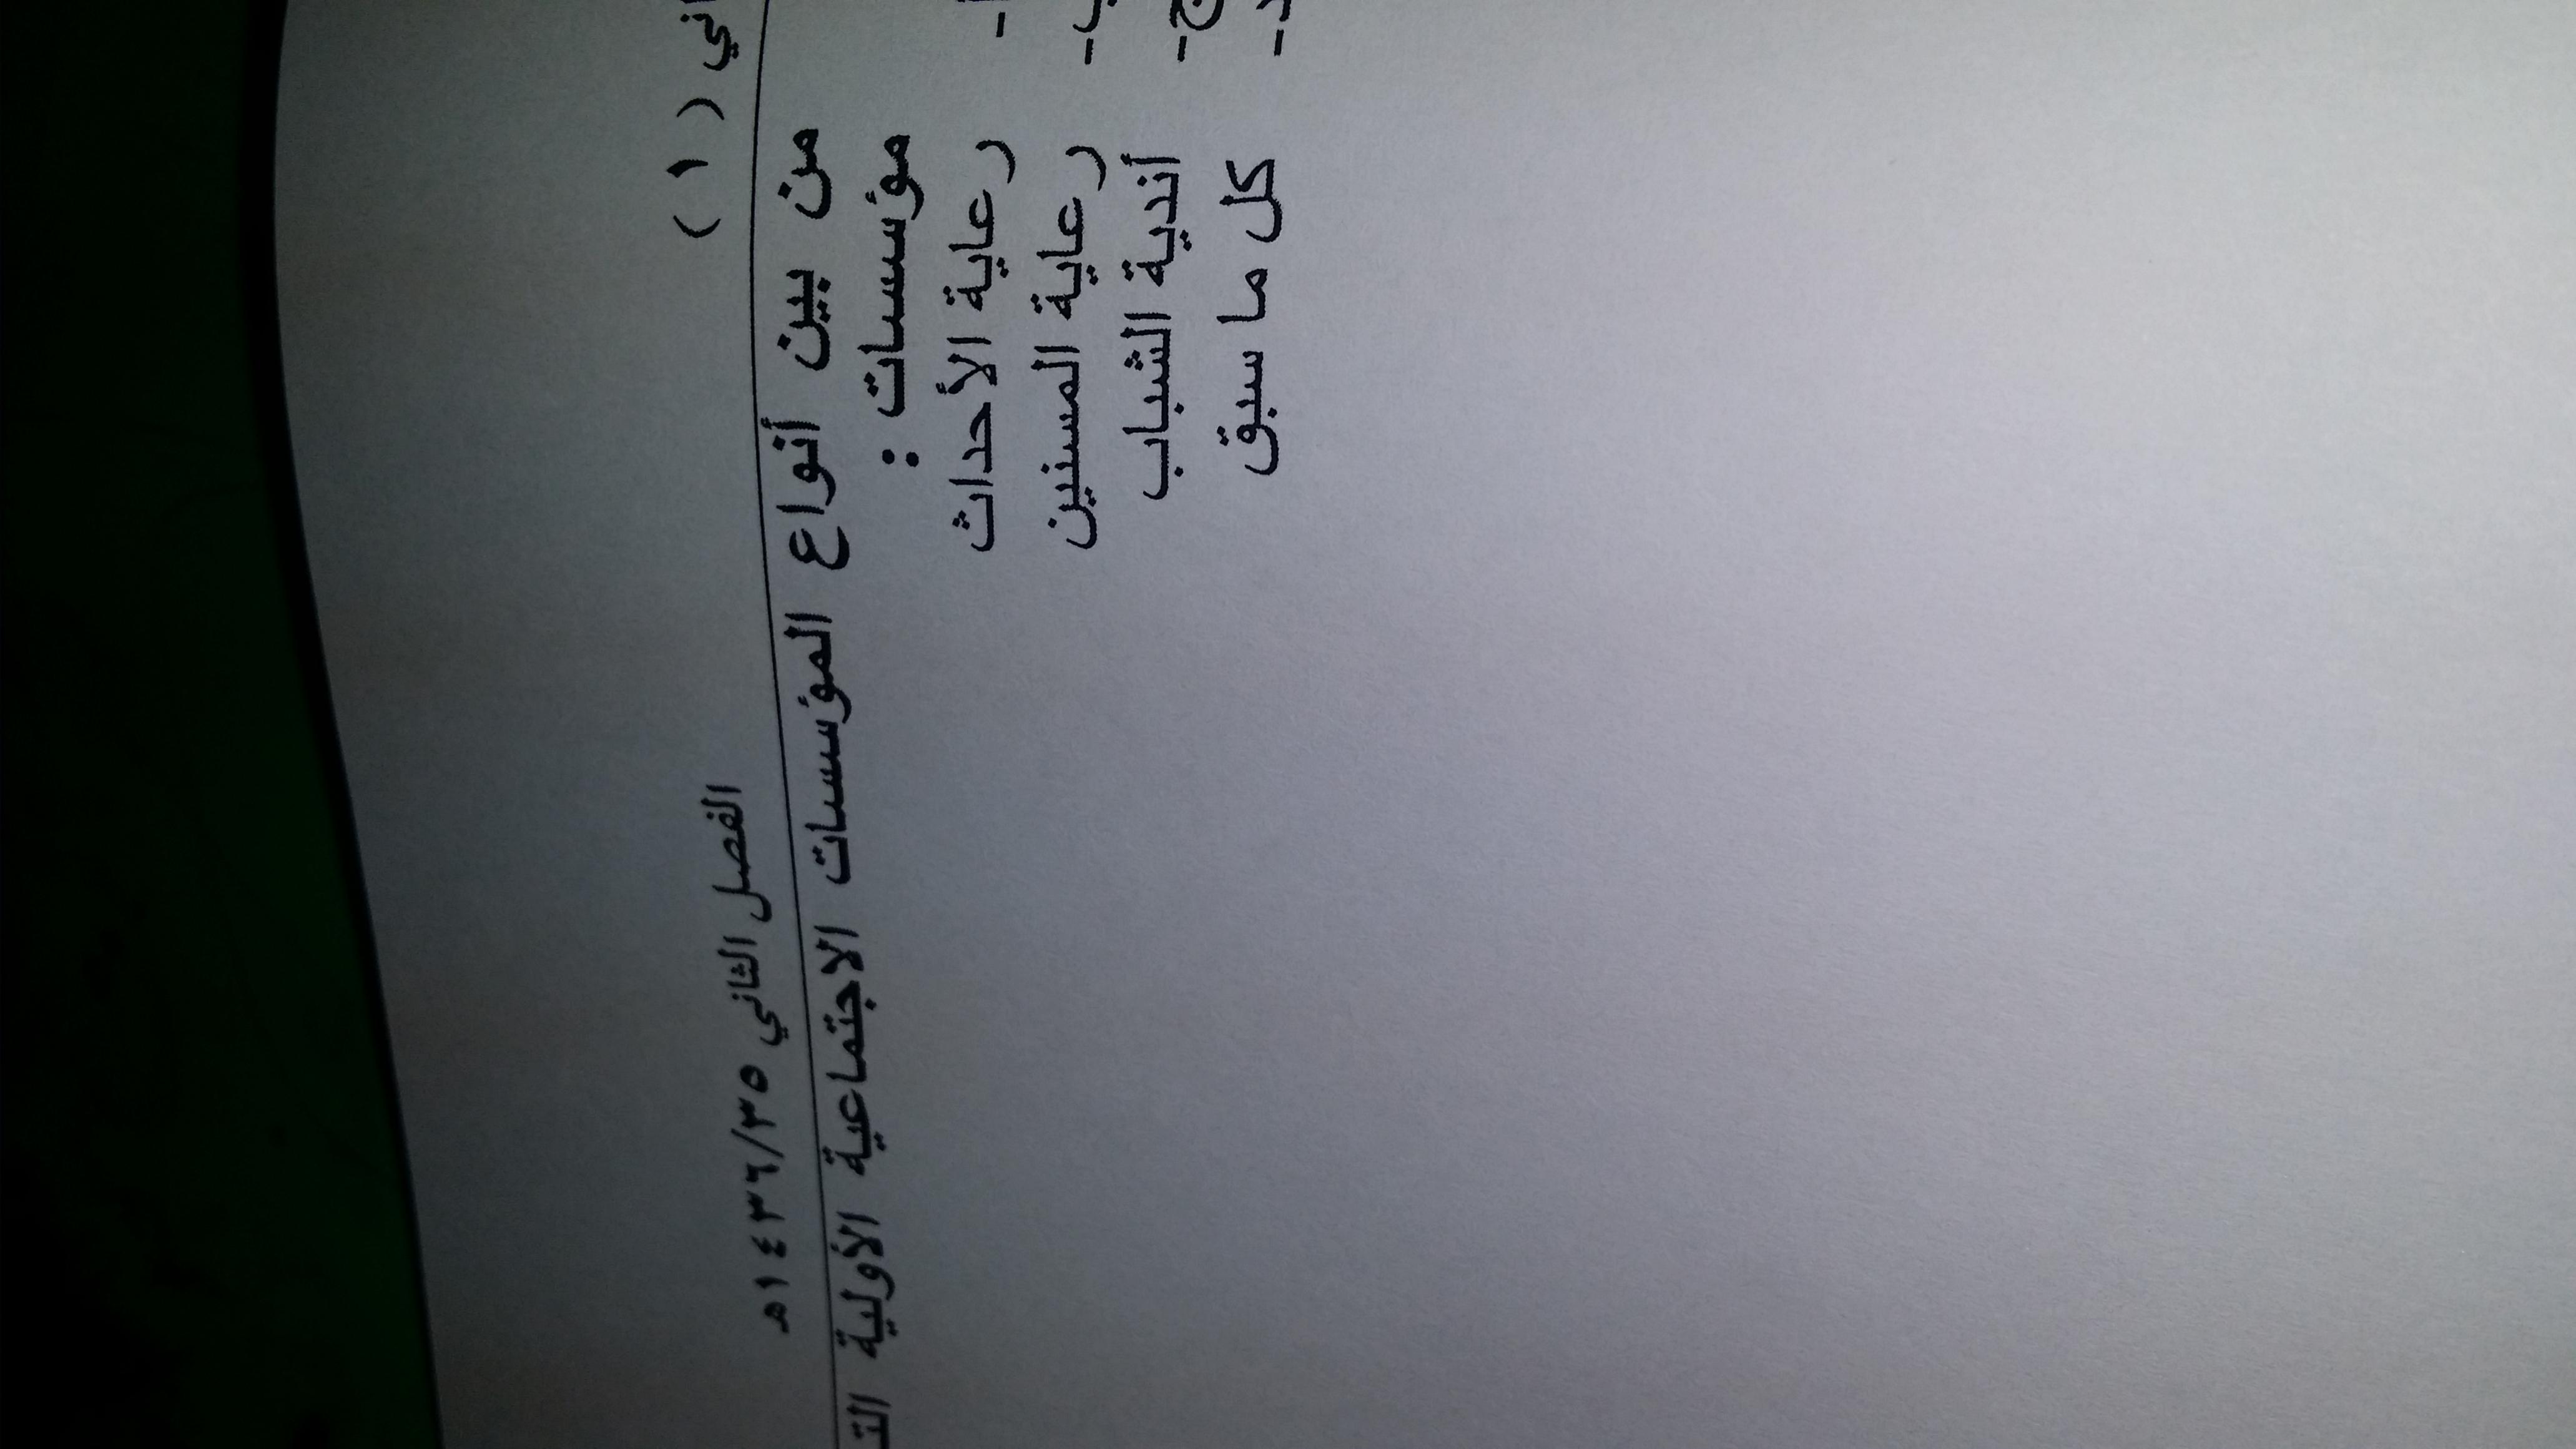 ( ١ ) الفصل الثاني ١٤٣٦/٣٥هـ
من بين أنواع المؤسسات الاجتماعية الأولية
مؤسسات :
أ- رعاية الأحداث
ب- رعاية المسنين
ج- أندية الشباب
د- كل ما سبق